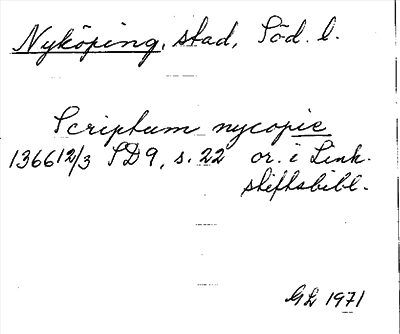 Nyköping, stad, Söd. l.
Scriptum nycopie
1366 12/3 SD 9, s. 22 or. i Link.
stiftsbibl.
GL 1971